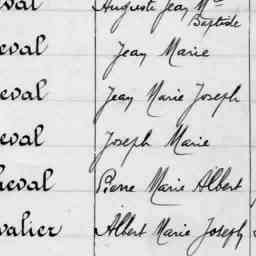 val Auguste Jean Mie
Baptiste
eval Jean Marie
eval Jean Marie Joseph
eval Joseph Marie
heval Pierre Marie Albert
valier Albert Marie Joseph